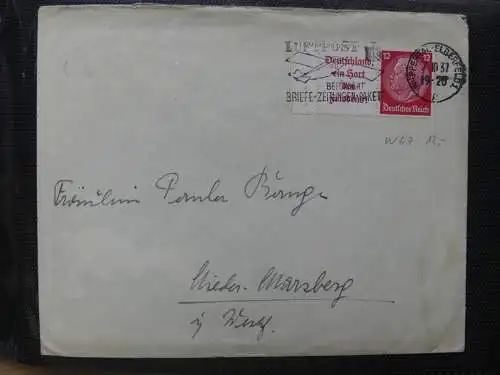 LUFTPOST
WUPPERTAL-ELBERFELD
37
19-20
Deutschland,
ein Hort
BEFÖRDERT
BRIEFE-ZEITUNGEN-PAKETE
12 12
Deutsches Reich
W 67 12,-
Fräulein
Nieder-Marsberg
i/ Westf.